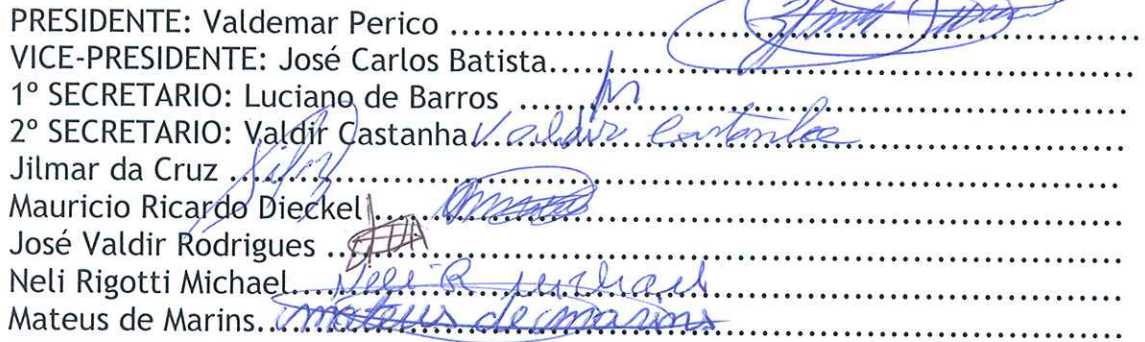 PRESIDENTE: Valdemar Perico ..........................................................................
VICE-PRESIDENTE: José Carlos Batista..............................................................
1º SECRETARIO: Luciano de Barros ..................................................................
2º SECRETARIO: Valdir Castanha Valdir Castanha ..............................
Jilmar da Cruz ..........................................................................................
Mauricio Ricardo Dieckel ..........................................................................
José Valdir Rodrigues ................................................................................
Neli Rigotti Michael.... Neli R Michael ..............................................
Mateus de Marins.. Mateus de Marins ..............................................